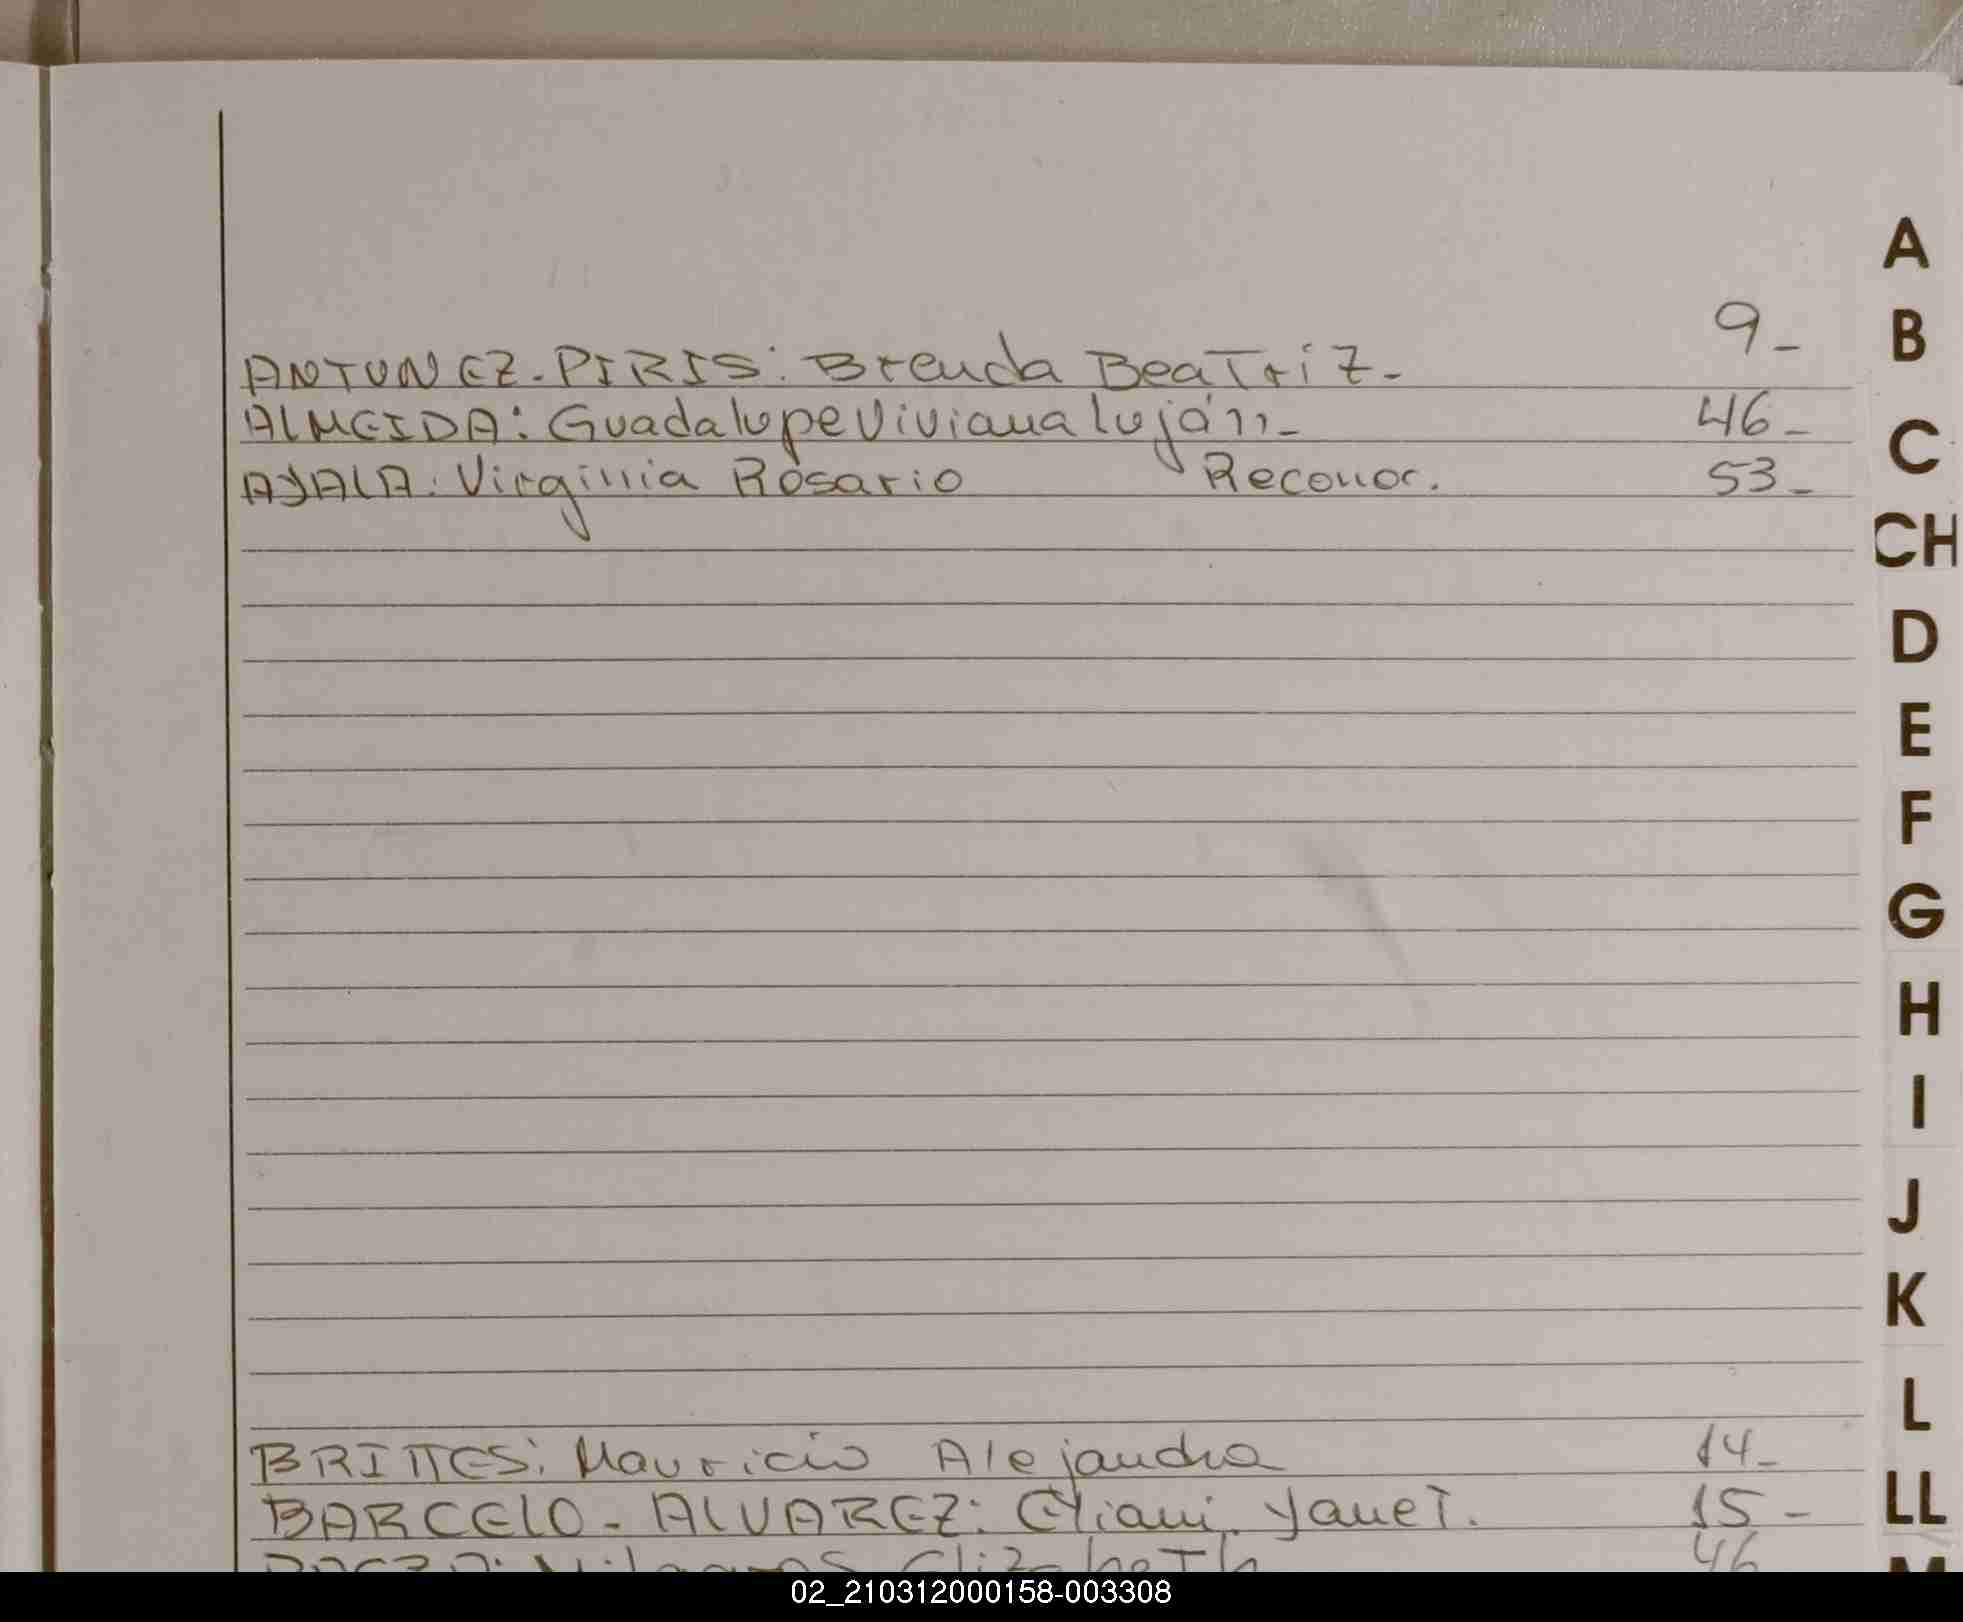 ANTUNEZ-PIRIS: Brenda BeaTriz- 9-
ALMEIDA: Guadalupe Viviana Luján- 46-
AYALA: Virginia Rosario Reconoc. 53-
BRITTES: Mauricio Alejandro 14-
BARCELO-ALVAREZ: Eliani Yanet. 15-
Elizabeth 46
A
B
C
CH
D
E
F
G
H
I
J
K
L
LL
M
02_210312000158-003308